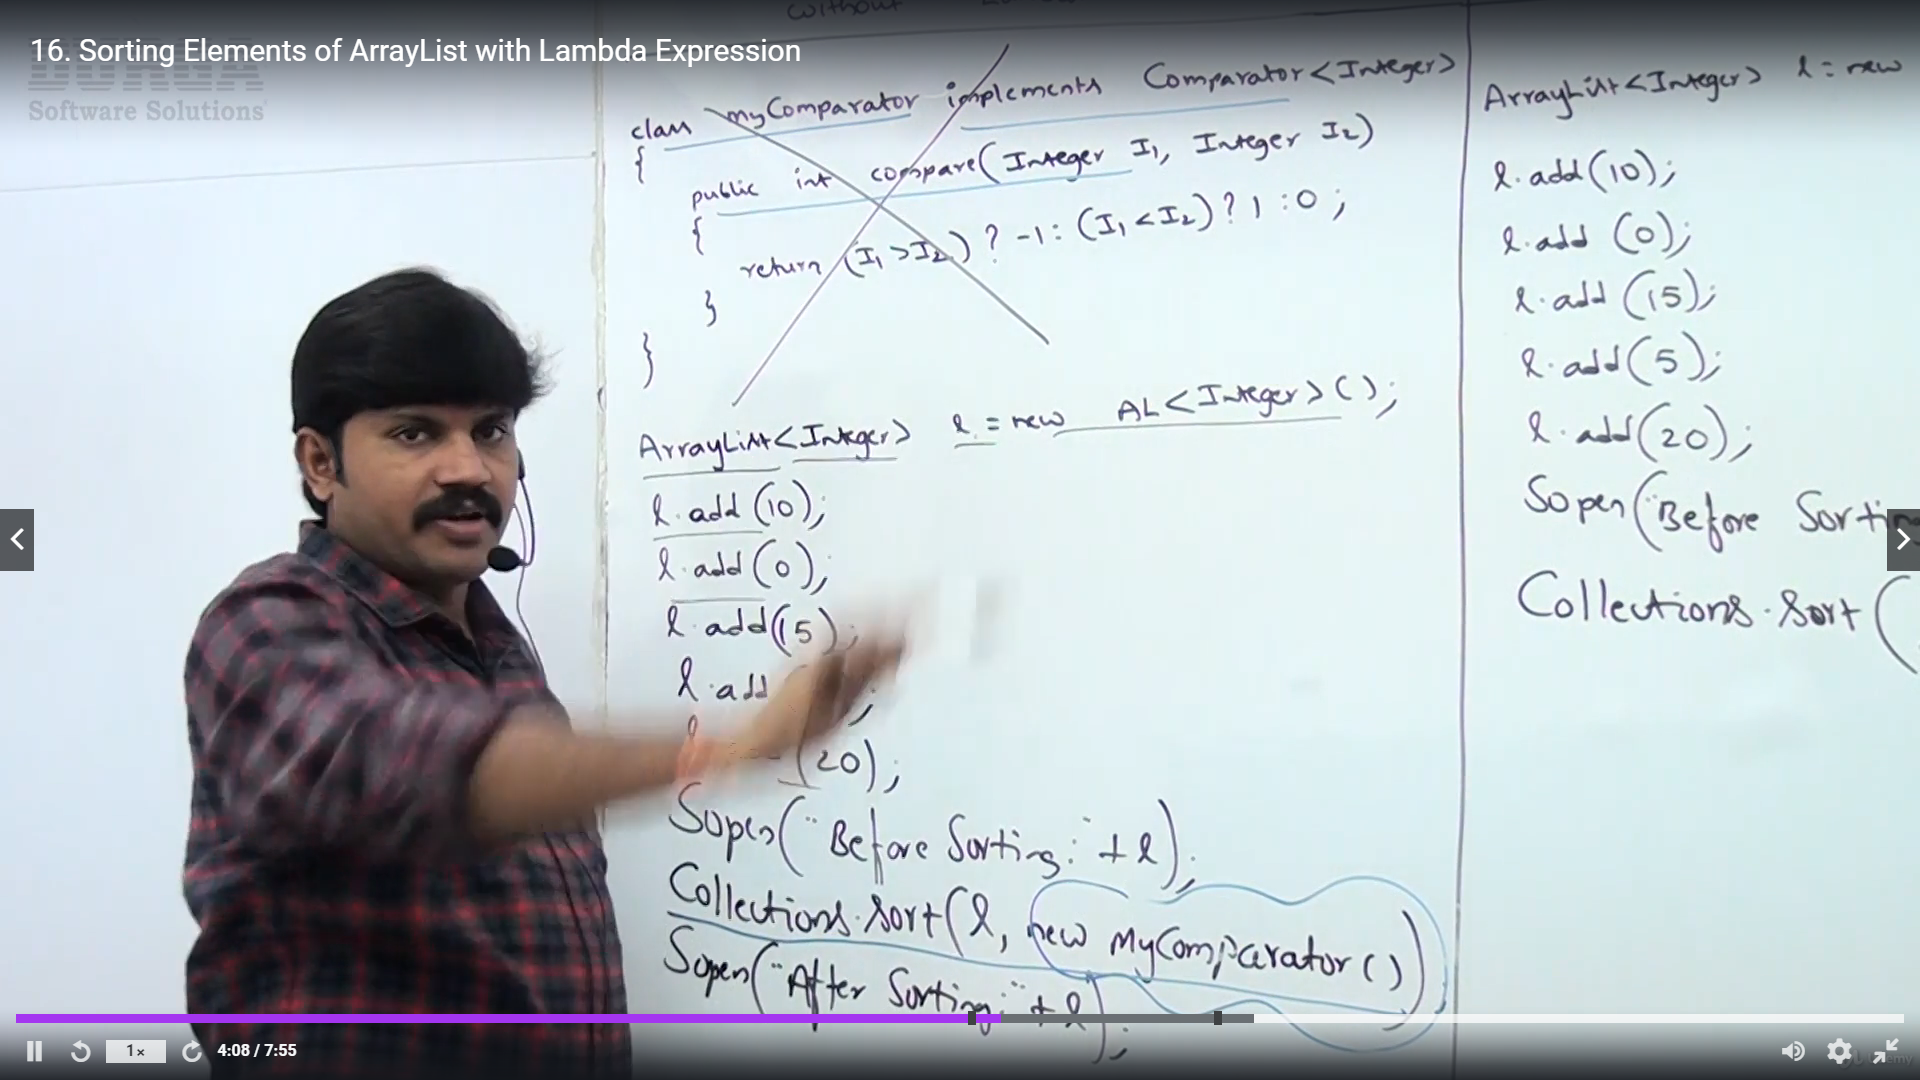 without
16. Sorting Elements of ArrayList with Lambda Expression
DURGA
Software Solutions
class myComparator implements Comparator<Integer>
{
public int compare(Integer I1, Integer I2)
{
return (I1 > I2) ? -1 : (I1 < I2) ? 1 : 0 ;
}
}
ArrayList<Integer> l = new AL<Integer>();
l.add(10);
l.add(0);
l.add(15);
l.add
(20);
Sopln("Before Sorting:" + l);
Collections.sort(l, new MyComparator())
Sopln("After Sorting:" + l);
ArrayList<Integer> l = new
l.add(10);
l.add(0);
l.add(15);
l.add(5);
l.add(20);
Sopln("Before Sorting
Collections.sort(
1x
4:08 / 7:55